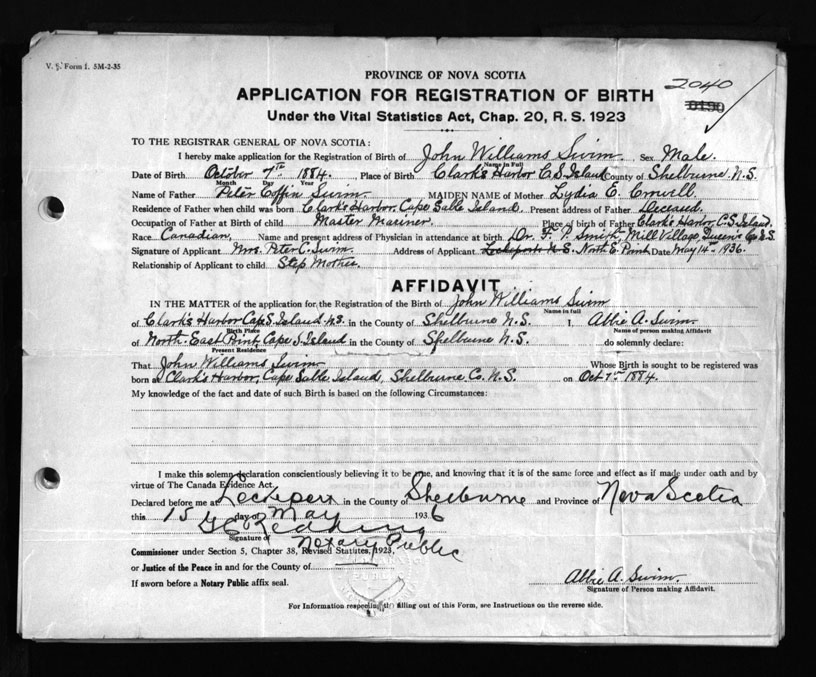 V. S. Form 1. 5M-2-35
PROVINCE OF NOVA SCOTIA
2040
APPLICATION FOR REGISTRATION OF BIRTH
Under the Vital Statistics Act, Chap. 20, R. S. 1923
TO THE REGISTRAR GENERAL OF NOVA SCOTIA:
I hereby make application for the Registration of Birth of John Williams Swim Sex Male.
Name in Full
Date of Birth October 7th 1884. Place of Birth Clark's Harbor C.S. Island County of Shelburne. N.S.
Month Day Year
Name of Father Peter Coffin Swim. MAIDEN NAME of Mother Lydia E. Crowell.
Residence of Father when child was born Clark's Harbor, Cape Sable Island. Present address of Father Deceased.
Occupation of Father at Birth of child Master Mariner. Place of birth of Father Clark's Harbor, C.S. Island.
Race Canadian, Name and present address of Physician in attendance at birth Dr. F. P. Smith, Mill Village, Queen's Co. N.S.
Signature of Applicant Mrs. Peter C. Swim. Address of Applicant Lockeport N.S. North E. Point Date May 14th 1936.
Relationship of Applicant to child Step Mother.
AFFIDAVIT
IN THE MATTER of the application for the Registration of the Birth of John Williams Swim
Name in full
of Clark's Harbor Cape S. Island. N.S. in the County of Shelburne N.S. I, Abbie A. Swim.
Birth Place Name of person making Affidavit
of North-East Point, Cape S. Island in the County of Shelburne N.S. do solemnly declare:
Present Residence
That John Williams Swim Whose Birth is sought to be registered was
born at Clark's Harbor, Cape Sable Island, Shelburne Co. N.S. on Oct 7th 1884.
My knowledge of the fact and date of such Birth is based on the following Circumstances:
I make this solemn declaration conscientiously believing it to be true, and knowing that it is of the same force and effect as if made under oath and by
virtue of The Canada Evidence Act.
Declared before me at Lockeport in the County of Shelburne and Province of Nova Scotia
this 15 day of May 1936
Signature of
Notary Public
Commissioner under Section 5, Chapter 38, Revised Statutes, 1923,
or Justice of the Peace in and for the County of
If sworn before a Notary Public affix seal.
Abbie A. Swim.
Signature of Person making Affidavit.
For Information respecting the filling out of this Form, see Instructions on the reverse side.